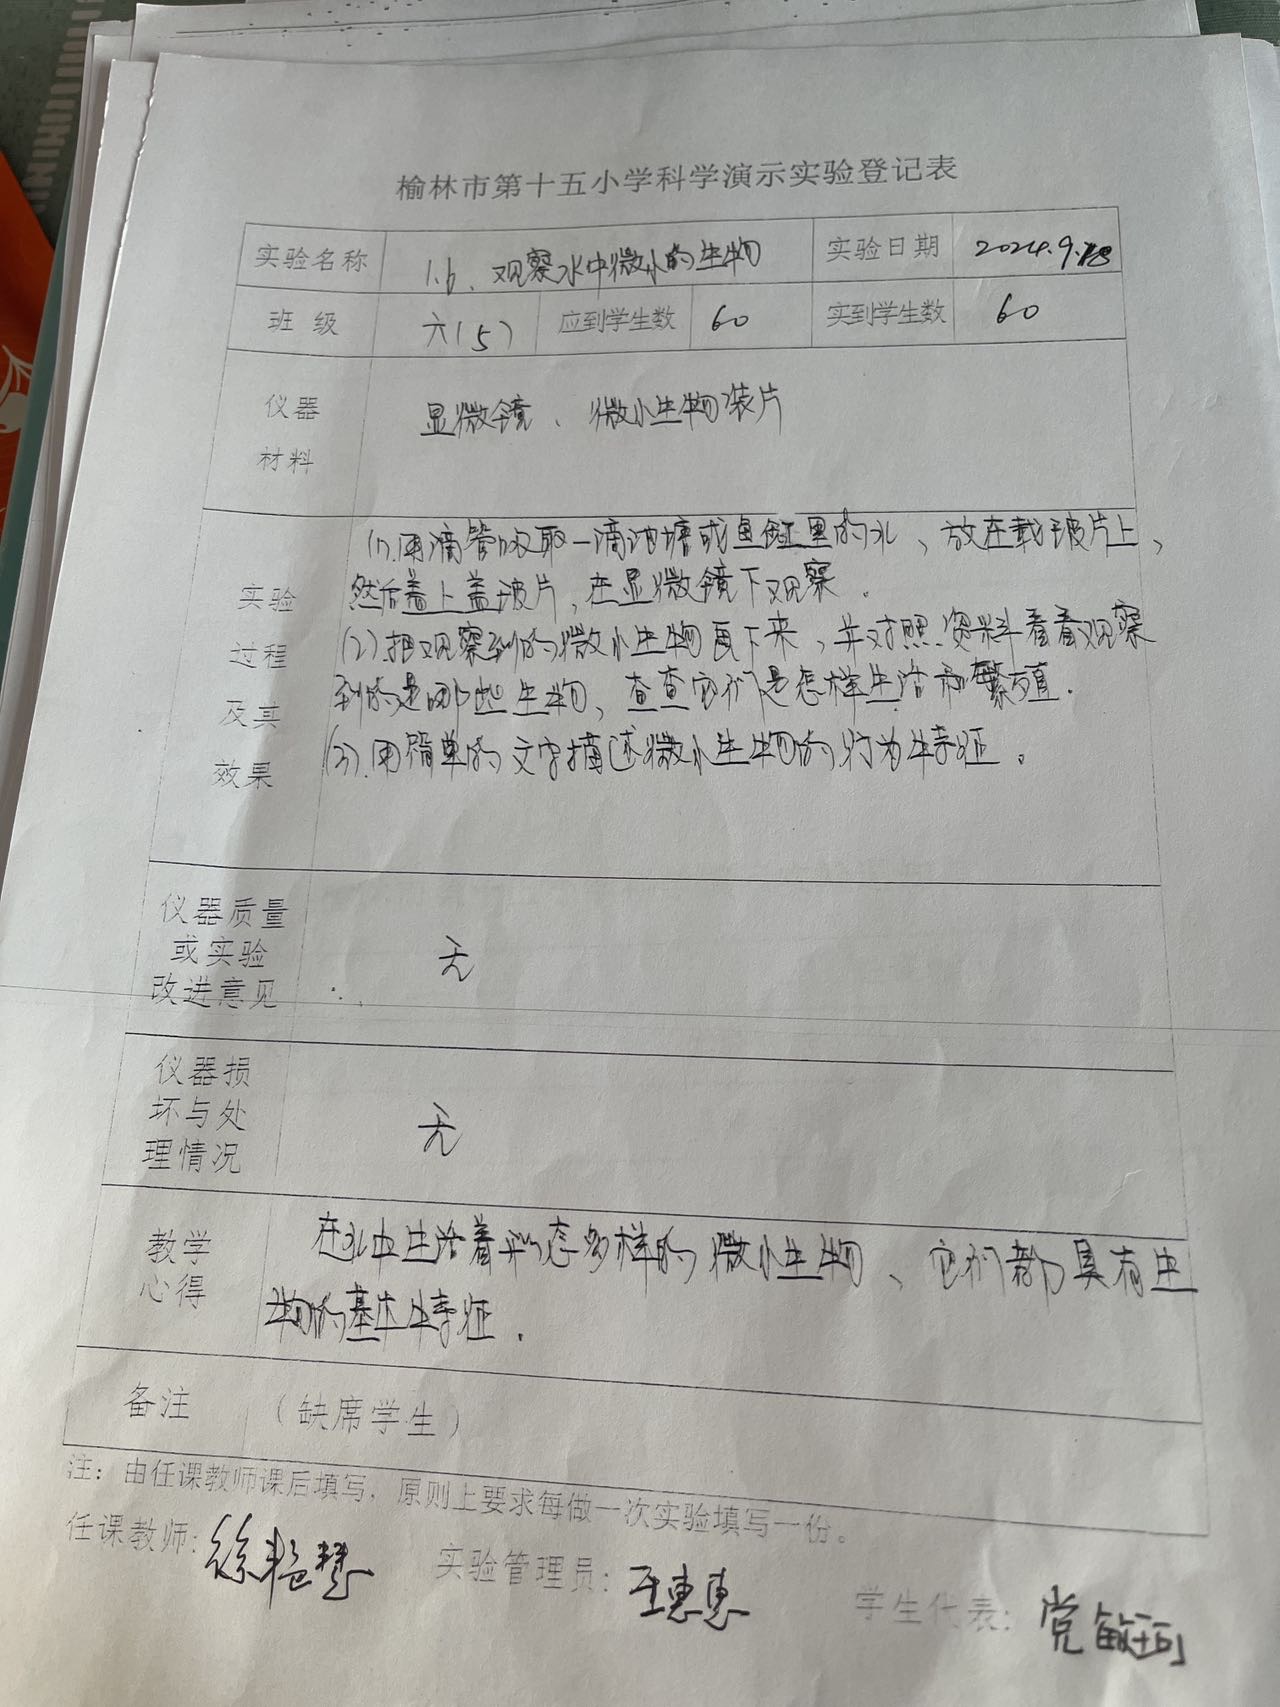 榆林市第十五小学科学演示实验登记表
实验名称 1.6、观察水中微小的生物 实验日期 2024.9.18
班 级 六(5) 应到学生数 60 实到学生数 60
仪器
材料
显微镜、微小生物装片
实验
过程
及其
效果
(1).用滴管吸取一滴池塘或鱼缸里的水、放在载玻片上、
然后盖上盖玻片,在显微镜下观察.
(2)把观察到的微小生物画下来,并对照资料看看观察
到的是哪些生物、查查它们是怎样生活和繁殖.
(3).用简单的文字描述微小生物的行为特征。
仪器质量
或实验
改进意见
无
仪器损
坏与处
理情况
无
教学
心得
在水中生活着形态多样的微小生物、它们都具有生
物的基本特征.
备注 (缺席学生)
注:由任课教师课后填写,原则上要求每做一次实验填写一份。
任课教师:徐艳慧 实验管理员:王惠惠 学生代表:党